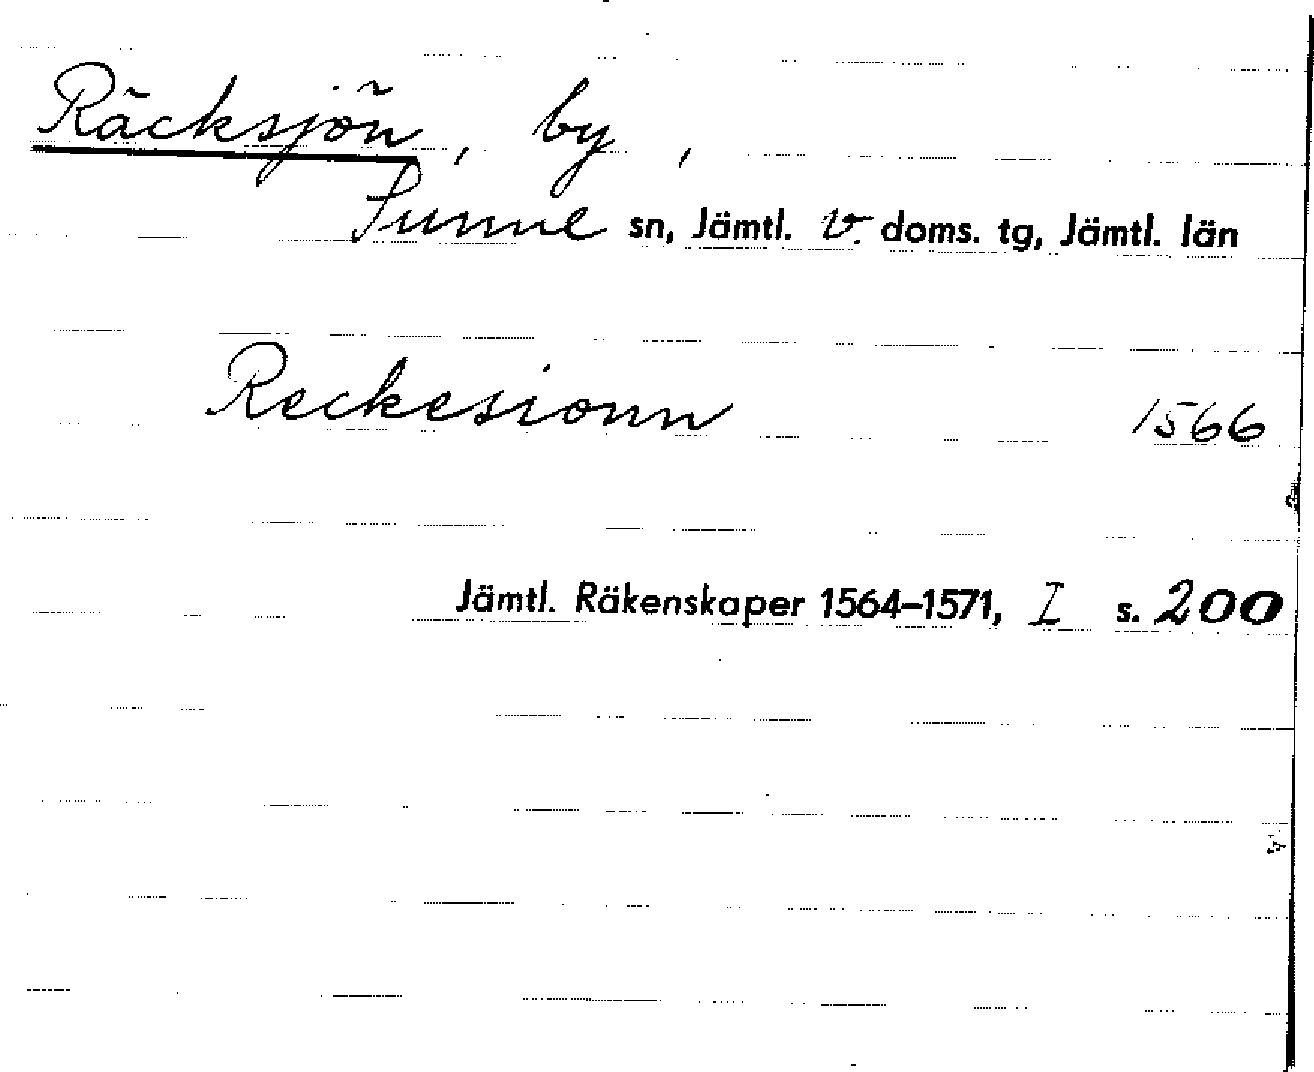 Räcksjön, by,
Sunne sn, Jämtl. v. doms. tg, Jämtl. län
Reckesionn 1566
Jämtl. Räkenskaper 1564–1571, I s. 200